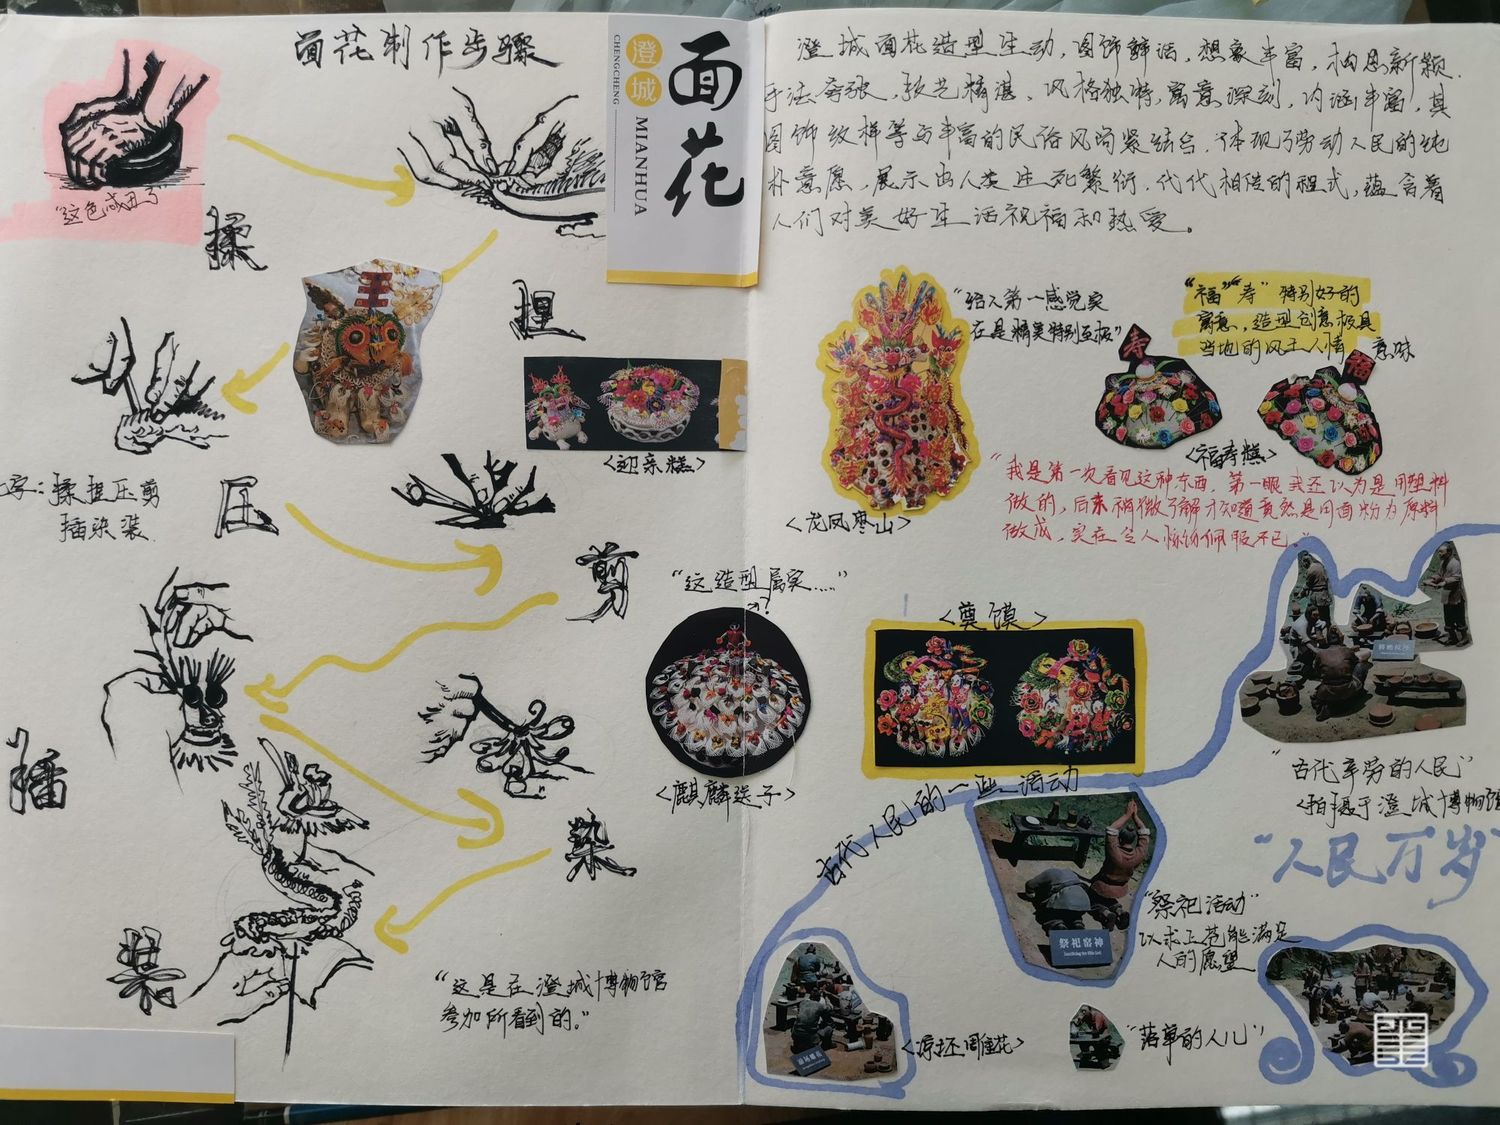 面花制作步骤
澄城
CHENGCHENG
面花
MIANHUA
揉
捏
<迎亲糕>
揉捏压剪
插染装
压
剪
插
染
装
"这是在澄城博物馆
参加所看到的。"
澄城面花造型生动，图饰鲜活，想象丰富，构思新颖，
手法夸张，技艺精湛、风格独特，寓意深刻，内涵丰富，其
图饰纹样等与丰富的民俗风尚紧结合，体现了劳动人民的纯
朴意愿，展示出人类生死繁衍、代代相传的程式，蕴含着
人们对美好生活祝福和热爱。
"给人第一感觉实
在是精美特别至极"
<龙凤寒山>
"福""寿"特别好的
寓意、造型创意极具
当地的风土人情
意味
寿
福
<福寿糕>
"我是第一次看见这种东西，第一眼我还以为是用塑料
做的，后来稍微了解才知道竟然是用面粉为原料
做成，实在令人佩服不已。"
"这造型属实……"
<麒麟送子>
<奠馍>
古代人民的一些活动
"古代辛劳的人民"
<拍摄于澄城博物馆
"人民万岁"
祭祀窑神
"祭祀活动"
以求上苍能满足
人的愿望
"落单的人儿"